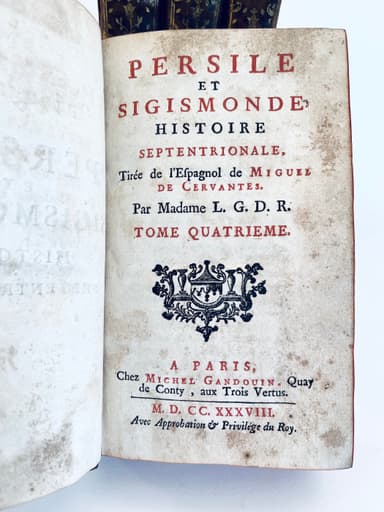 PERSILE
ET
SIGISMONDE,
HISTOIRE
SEPTENTRIONALE,
Tirée de l'Espagnol de MIGUEL
DE CERVANTES.
Par Madame L. G. D. R.
TOME QUATRIEME.
A PARIS,
Chez MICHEL GANDOUIN, Quay
de Conty, aux Trois Vertus.
M. D. CC. XXXVIII.
Avec Approbation & Privilége du Roy.